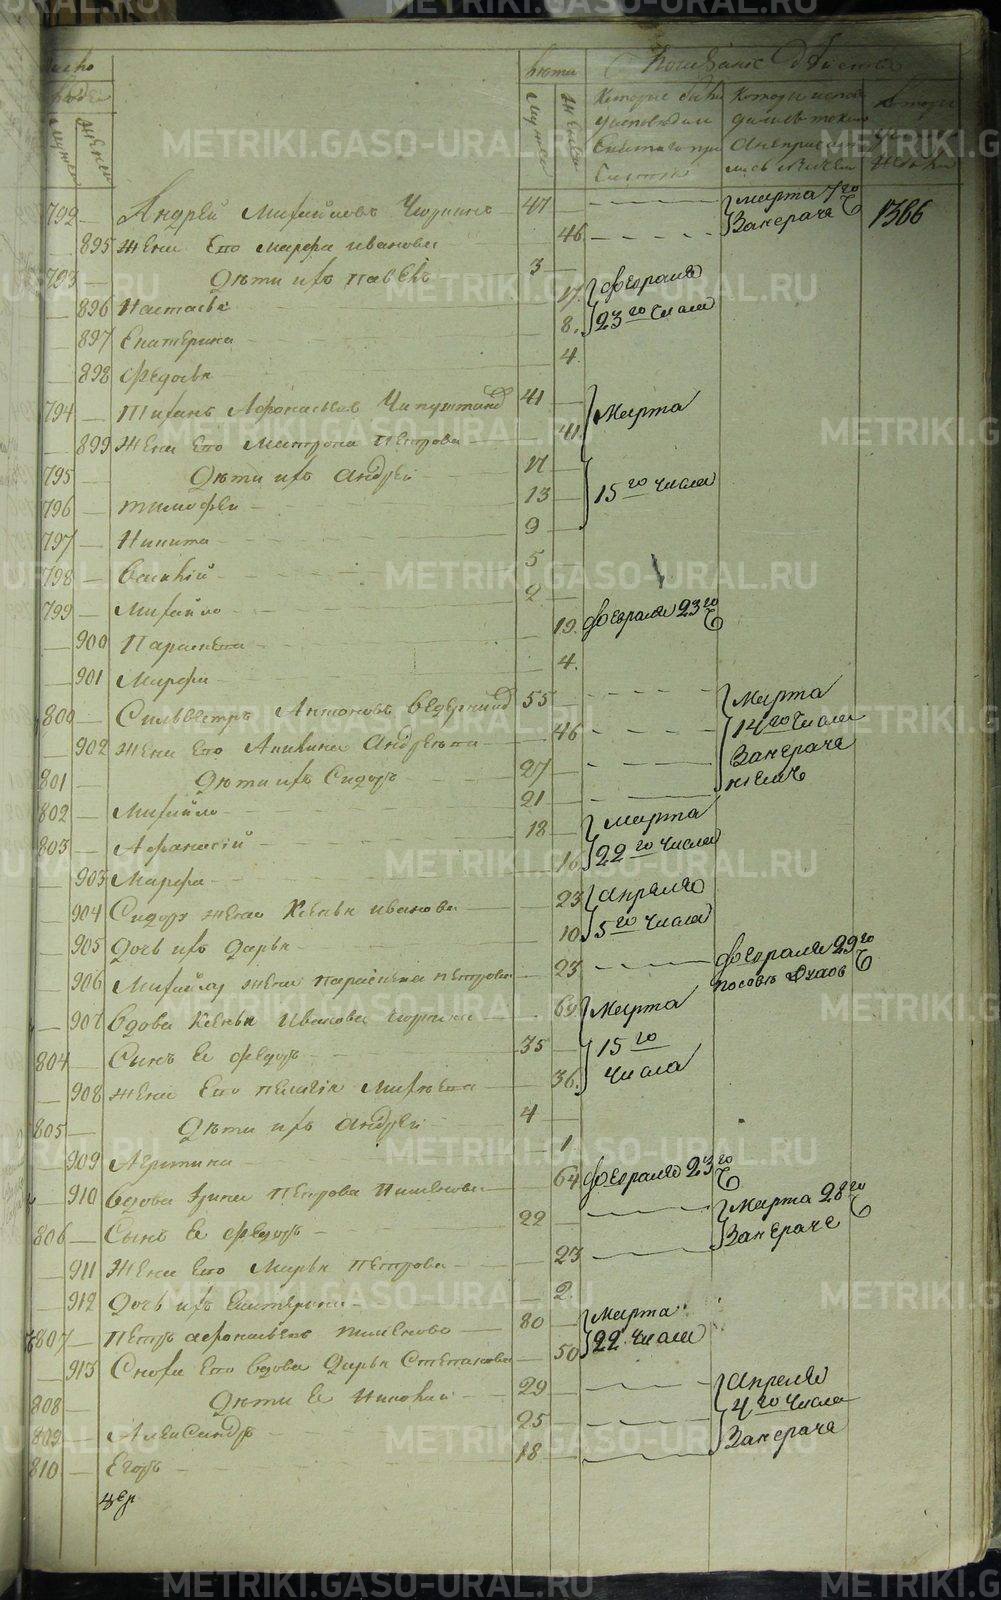 METRIKI.GASO-URAL.RU
число
людей
мужска
женска
лѣта
мужска
женска
Показанiе дѣйства
Которые были
у исповѣди и
святаго при
Которы испов
дались токмо
а не приобщи
лись
792 — Андрей Михайловъ Чюдинъ — 47 — марта 7го Ч 1366
895 жена Его марфа иванова 46 Занерачe
793 — дѣти ихъ павелъ 3
896 Настасья 17 февраля
897 Екатерина 8 23го числа
898 Федосья 4
794 — Тихонъ Афонасьевъ 41 Марта
899 жена Его Матрона петрова 41
795 — дѣти ихъ андрей 17 15го числа
796 — тимофей 13
797 — Никита 9
798 — Василiй 5
799 — Михайло 2
900 Парасковья 19 февраля 23го Ч
901 Марфа 4
800 — Сильвестръ Антоновъ 55 Марта
902 жена Его Акилина Андреева 46 14го числа
801 дѣти ихъ Сидоръ 27 Занераче
802 Михайло 21 нiемъ
803 Афанасiй 18 марта
903 Марфа 16 22го числа
904 Сидора жена Ксенья иванова 23 апреля
905 дочь ихъ дарья 10 5го числа
906 Михайла жена парасковья петрова 23 февраля 29го Ч
907 вдова Ксенья Иванова 69 Марта
804 Сынъ Ея федоръ 35 15го
908 жена Его пелагея Михеева 36 числа
805 дѣти ихъ андрей 4
909 1
910 вдова Ирина Петрова 64 февраля 23го Ч
806 — Сынъ Ея федоръ 22 Марта 28го Ч
911 жена Его Марья петрова 23 Занераче
912 дочь ихъ Екатерина 2
807 — петръ афонасьевъ 80 Марта
913 Сноха Его вдова Дарья Степанова 50 22 числа
808 дѣти Ея Николай 29 апреля
809 — Александръ 25 4го числа
810 Егоръ 18 Занераче